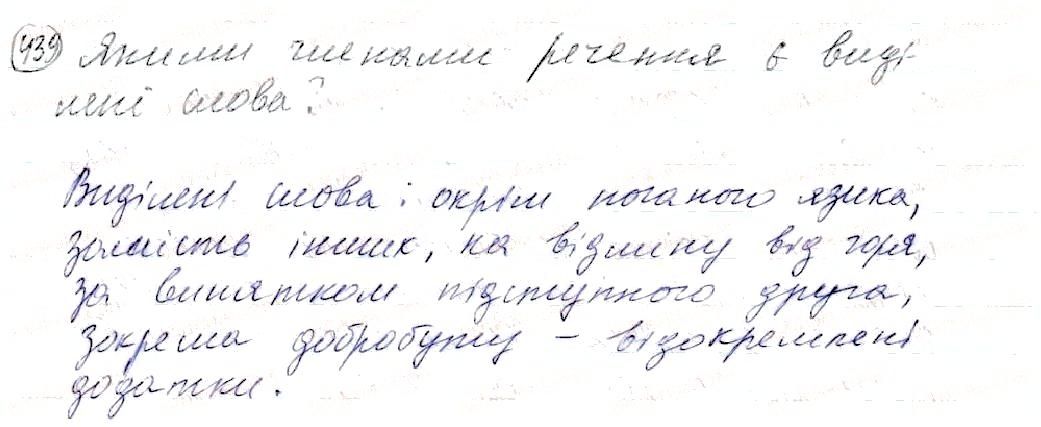 439 Якими членами речення є виді-
лені слова?
Виділені слова: окрім поганого язика,
замість інших, на відміну від горя,
за винятком підступного друга,
зокрема добробуту – відокремлені
додатки.